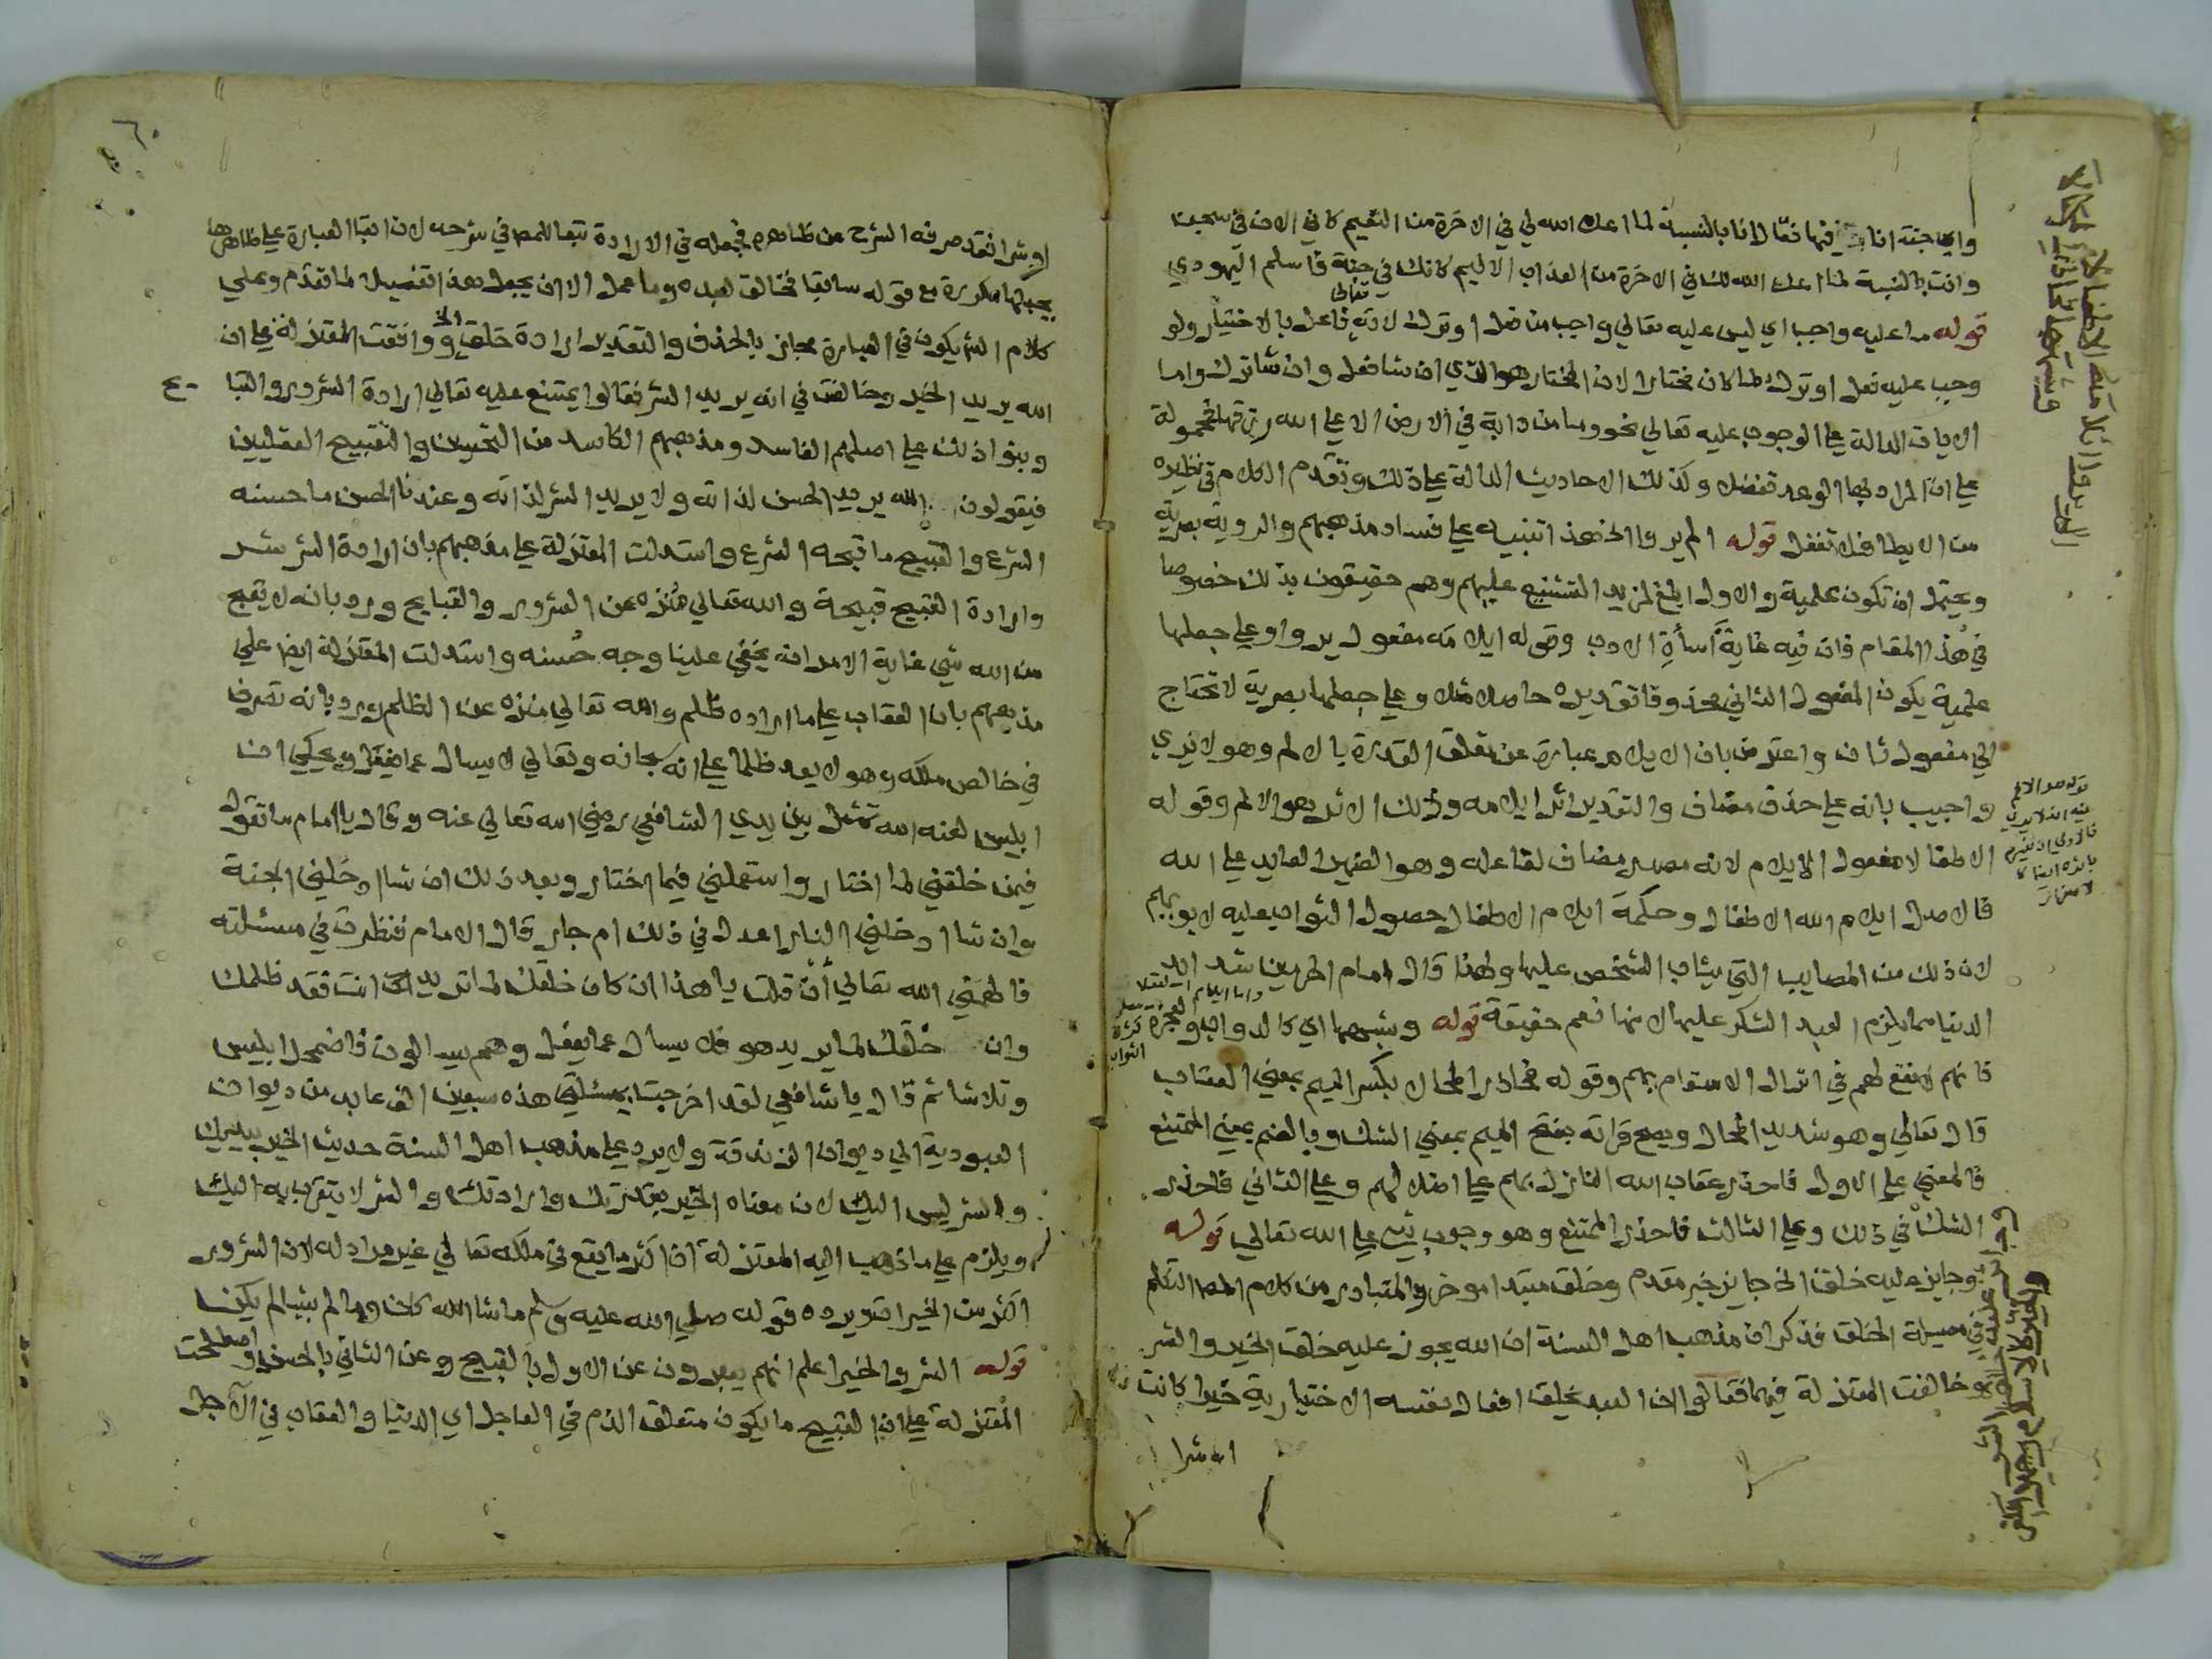 واي جنة انا فيها فقال انا بالنسبة لما اعد الله لي في الاخرة من النعيم كاني الان في سجن
وانت بالنسبة لما اعد الله لك في الاخرة من العذاب الاليم كانك في جنة فاسلم اليهودي
قوله ما عليه واجب اي ليس عليه تعالي واجب من فعل او ترك لانه تعالى فاعل بالاختيار ولو
وجب عليه فعل او ترك لما كان مختارا لان المختار هو الذي ان شا فعل وان شا ترك واما
الايات الدالة علي الوجوب عليه تعالي نحو وما من دابة في الارض الا علي الله رزقها فمحمولة
علي ان المراد بها الوعد تفضلا وكذلك الاحاديث الدالة علي ذلك وتقدم الكلام في نظيره
من الايطا فلا تغفل قوله الم يروا الخ هذا تنبيه علي فساد مذهبهم والروية بصرية
ويحتمل ان تكون علمية والاول ابلغ لمزيد التشنيع عليهم وهم حقيقون بذلك خصوصا
في هذا المقام فان فيه غاية اسأة الادب وقوله ايلامه مفعول يروا وعلي جعلها
علمية يكون المفعول الثاني محذوفا تقديره حاصلا مثلا وعلي جعلها بصرية لا تحتاج
الي مفعول ثان واعترض بان الايلام عبارة عن تعلق القدرة بالالم وهو لا يري
واجيب بانه علي حذف مضاف والتقدير اثر ايلامه وذلك الاثر هو الالم وقوله
الاطفالا مفعول الايلام لانه مصدر مضاف لفاعله وهو الضمير العايد علي الله
فالاصل ايلام الله الاطفال وحكمة ايلام الاطفال حصول الثواب عليه لابويهم
لان ذلك من المصايب التي يثاب الشخص عليها ولهذا قال امام الحرمين شدايد
الدنيا مما يلزم العبد الشكر عليها لانها نعم حقيقة قوله وشبهها اي كالدواب والعجزة
فانهم لا نفع لهم في انزال الاسقام بهم وقوله فحاذر المحال بكسر الميم بمعني العقاب
قال تعالي وهو شديد المحال ويصح قراته بفتح الميم بمعني الشك وبالضم بمعني الممتنع
فالمعني علي الاول فاحذر عقاب الله النازل بهم علي اضلالهم وعلي الثاني فاحذر
الشك في ذلك وعلي الثالث فاحذر الممتنع وهو وجوب شي علي الله تعالي قوله
وجايز عليه خلق الخ جايز خبر مقدم وخلق مبتدا موخر والمتبادر من كلام المص التكلم
في مسيلة الخلق فذكر ان مذهب اهل السنة ان الله يجوز عليه خلق الخير والشر
وخالفت المعتزلة فيهما فقالوا ان العبد يخلق افعال نفسه الاختيارية خيرا كانت
او شرا
قوله هو الالم
٦٠
او شرا فقد صرفه الشرح عن ظاهره فجعله في الارادة تبعا للمص في شرحه لان ابقا العبارة علي ظاهرها
يجعلها مكررة مع قوله سابقا فخالق لعبده وما عمل الا ان يجعل هذا تفصيلا لما تقدم وعلي
كلام الش يكون في العبارة مجاز بالحذف والتقدير ارادة خلق الخ ووافقت المعتزلة علي ان
الله يريد الخير وخالفت في انه يريد الشر فقالوا يمتنع عليه تعالي ارادة الشرور والقبايح
وبنوا ذلك علي اصلهم الفاسد ومذهبهم الكاسد من التحسين والتقبيح العقليين
فيقولون الله يريد الحسن لذاته ولا يريد الشر لذاته وعندنا الحسن ما حسنه
الشرع والقبيح ما قبحه الشرع واستدلت المعتزلة علي مذهبهم بان ارادة الشر شر
وارادة القبيح قبيحة والله تعالي منزه عن الشرور والقبايح ورد بانه لا يقبح
من الله شي غاية الامر انه يخفي علينا وجه حسنه واستدلت المعتزلة ايضا علي
مذهبهم بان العقاب علي ما اراده ظلم والله تعالي منزه عن الظلم ورد بانه تصرف
في خالص ملكه وهو لا يعد ظلما علي انه سبحانه وتعالي لا يسال عما يفعل ويحكي ان
ابليس لعنه الله تمثل بين يدي الشافعي رضي الله تعالي عنه وقال يا امام ما تقول
فيمن خلقني لما اختار واستعملني فيما اختار وبعد ذلك ان شا ادخلني الجنة
وان شا ادخلني النار اعدل في ذلك ام جار قال الامام فنظرت في مسئلته
فالهمني الله تعالي ان قلت يا هذا ان كان خلقك لما تريد انت فقد ظلمك
وان خلقك لما يريد هو فلا يسال عما يفعل وهم يسالون فاضمحل ابليس
وتلاشا ثم قال يا شافعي لقد اخرجت بمسئلتي هذه سبعين الف عابد من ديوان
العبودية الي ديوان الزندقة ولا يرد علي مذهب اهل السنة حديث الخير بيديك
والشر ليس اليك لان معناه الخير بقدرتك وارادتك والشر لا يتقرب به اليك
ويلزم علي ما ذهب اليه المعتزلة ان اكثر ما يقع في ملكه تعالي غير مراد له لان الشرور
اكثر من الخيرات ويرده قوله صلي الله عليه وسلم ما شا الله كان وما لم يشا لم يكن
قوله الشر والخير اعلم انهم يعبرون عن الاول بالقبيح وعن الثاني بالحسن واصطلحت
المعتزلة علي ان القبيح ما يكون متعلق الذم في العاجل اي الدنيا والعقاب في الآجل